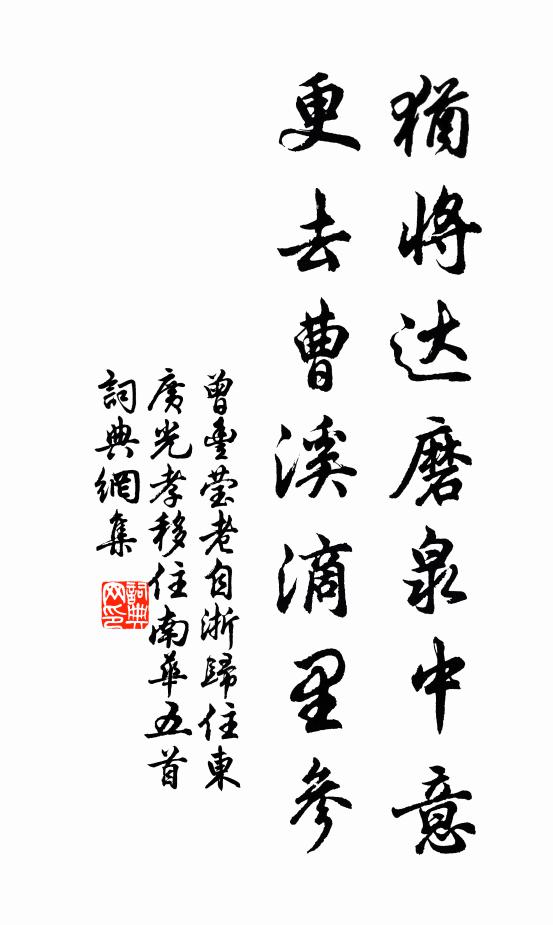 猶將达磨泉中意
更去曹溪滴里參
曾豊莹老自浙歸住東
廣光孝移住南華五首
詞典網集
詞典
网印